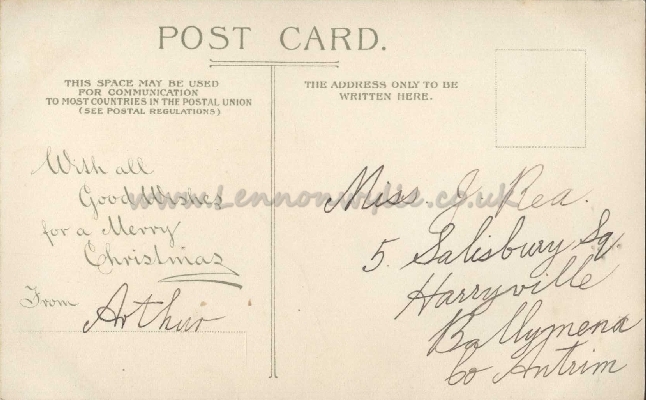 POST CARD.
THIS SPACE MAY BE USED
FOR COMMUNICATION
TO MOST COUNTRIES IN THE POSTAL UNION
(SEE POSTAL REGULATIONS)
THE ADDRESS ONLY TO BE
WRITTEN HERE.
With all
Good Wishes
for a Merry
Christmas
From Arthur
www.Lennonwylie.co.uk
Miss J. Rea.
5. Salisbury Sq.
Harryville
Ballymena
Co Antrim